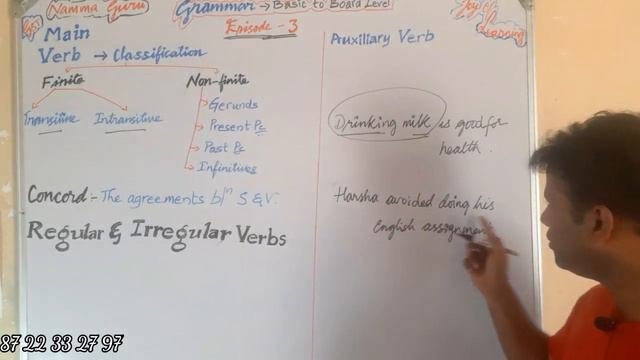 Namma Guru
Grammar → Basic to Board Level
Episode - 3
Joy of
Learning
Main
Verb → Classification
Finite
Non-finite
Transitive
Intransitive
Gerunds
Present Pc
Past Pc
Infinitives
Concord :- The agreements b/n S & V.
Regular & Irregular Verbs
Auxiliary Verb
Drinking milk is good for
health.
Harsha avoided doing his
English assignmen
87 22 33 27 97